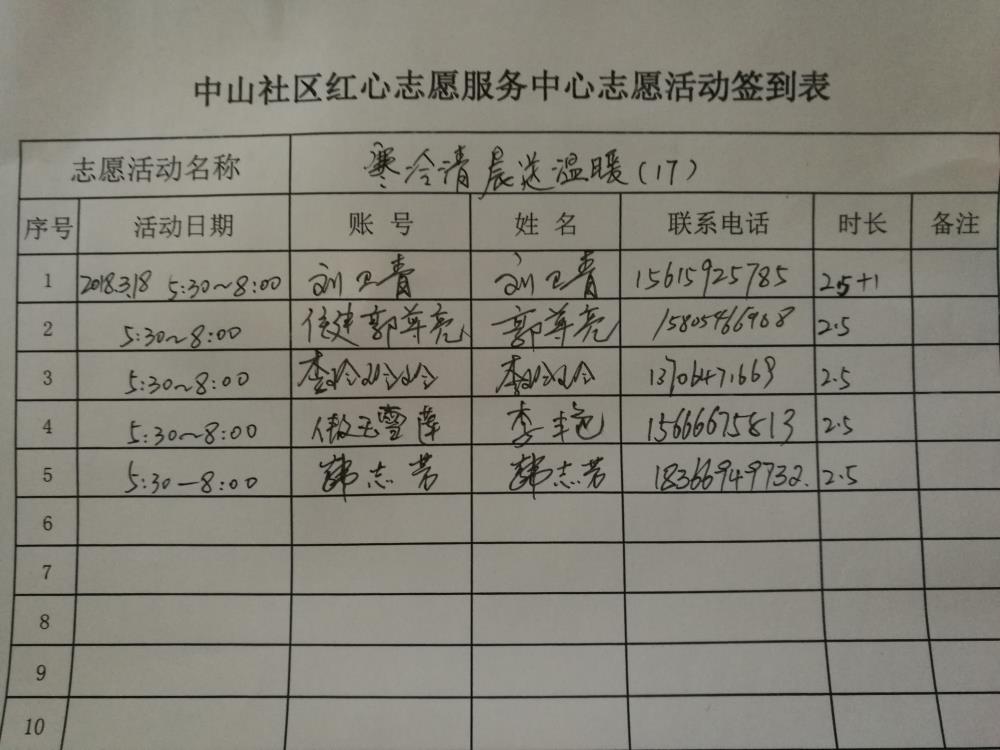 中山社区红心志愿服务中心志愿活动签到表
志愿活动名称 寒冷清晨送温暖(17)
序号 活动日期 账号 姓名 联系电话 时长 备注
1 2018.3.18 5:30~8:00 刘卫青 刘卫青 15615925785 2.5+1
2 5:30~8:00 信建郭尊亮 郭尊亮 15805466908 2.5
3 5:30~8:00 李玲玲 2.5
4 5:30~8:00 李艳 15666675813 2.5
5 5:30—8:00 韩志芳 韩志芳 18366949732. 2.5
6
7
8
9
10